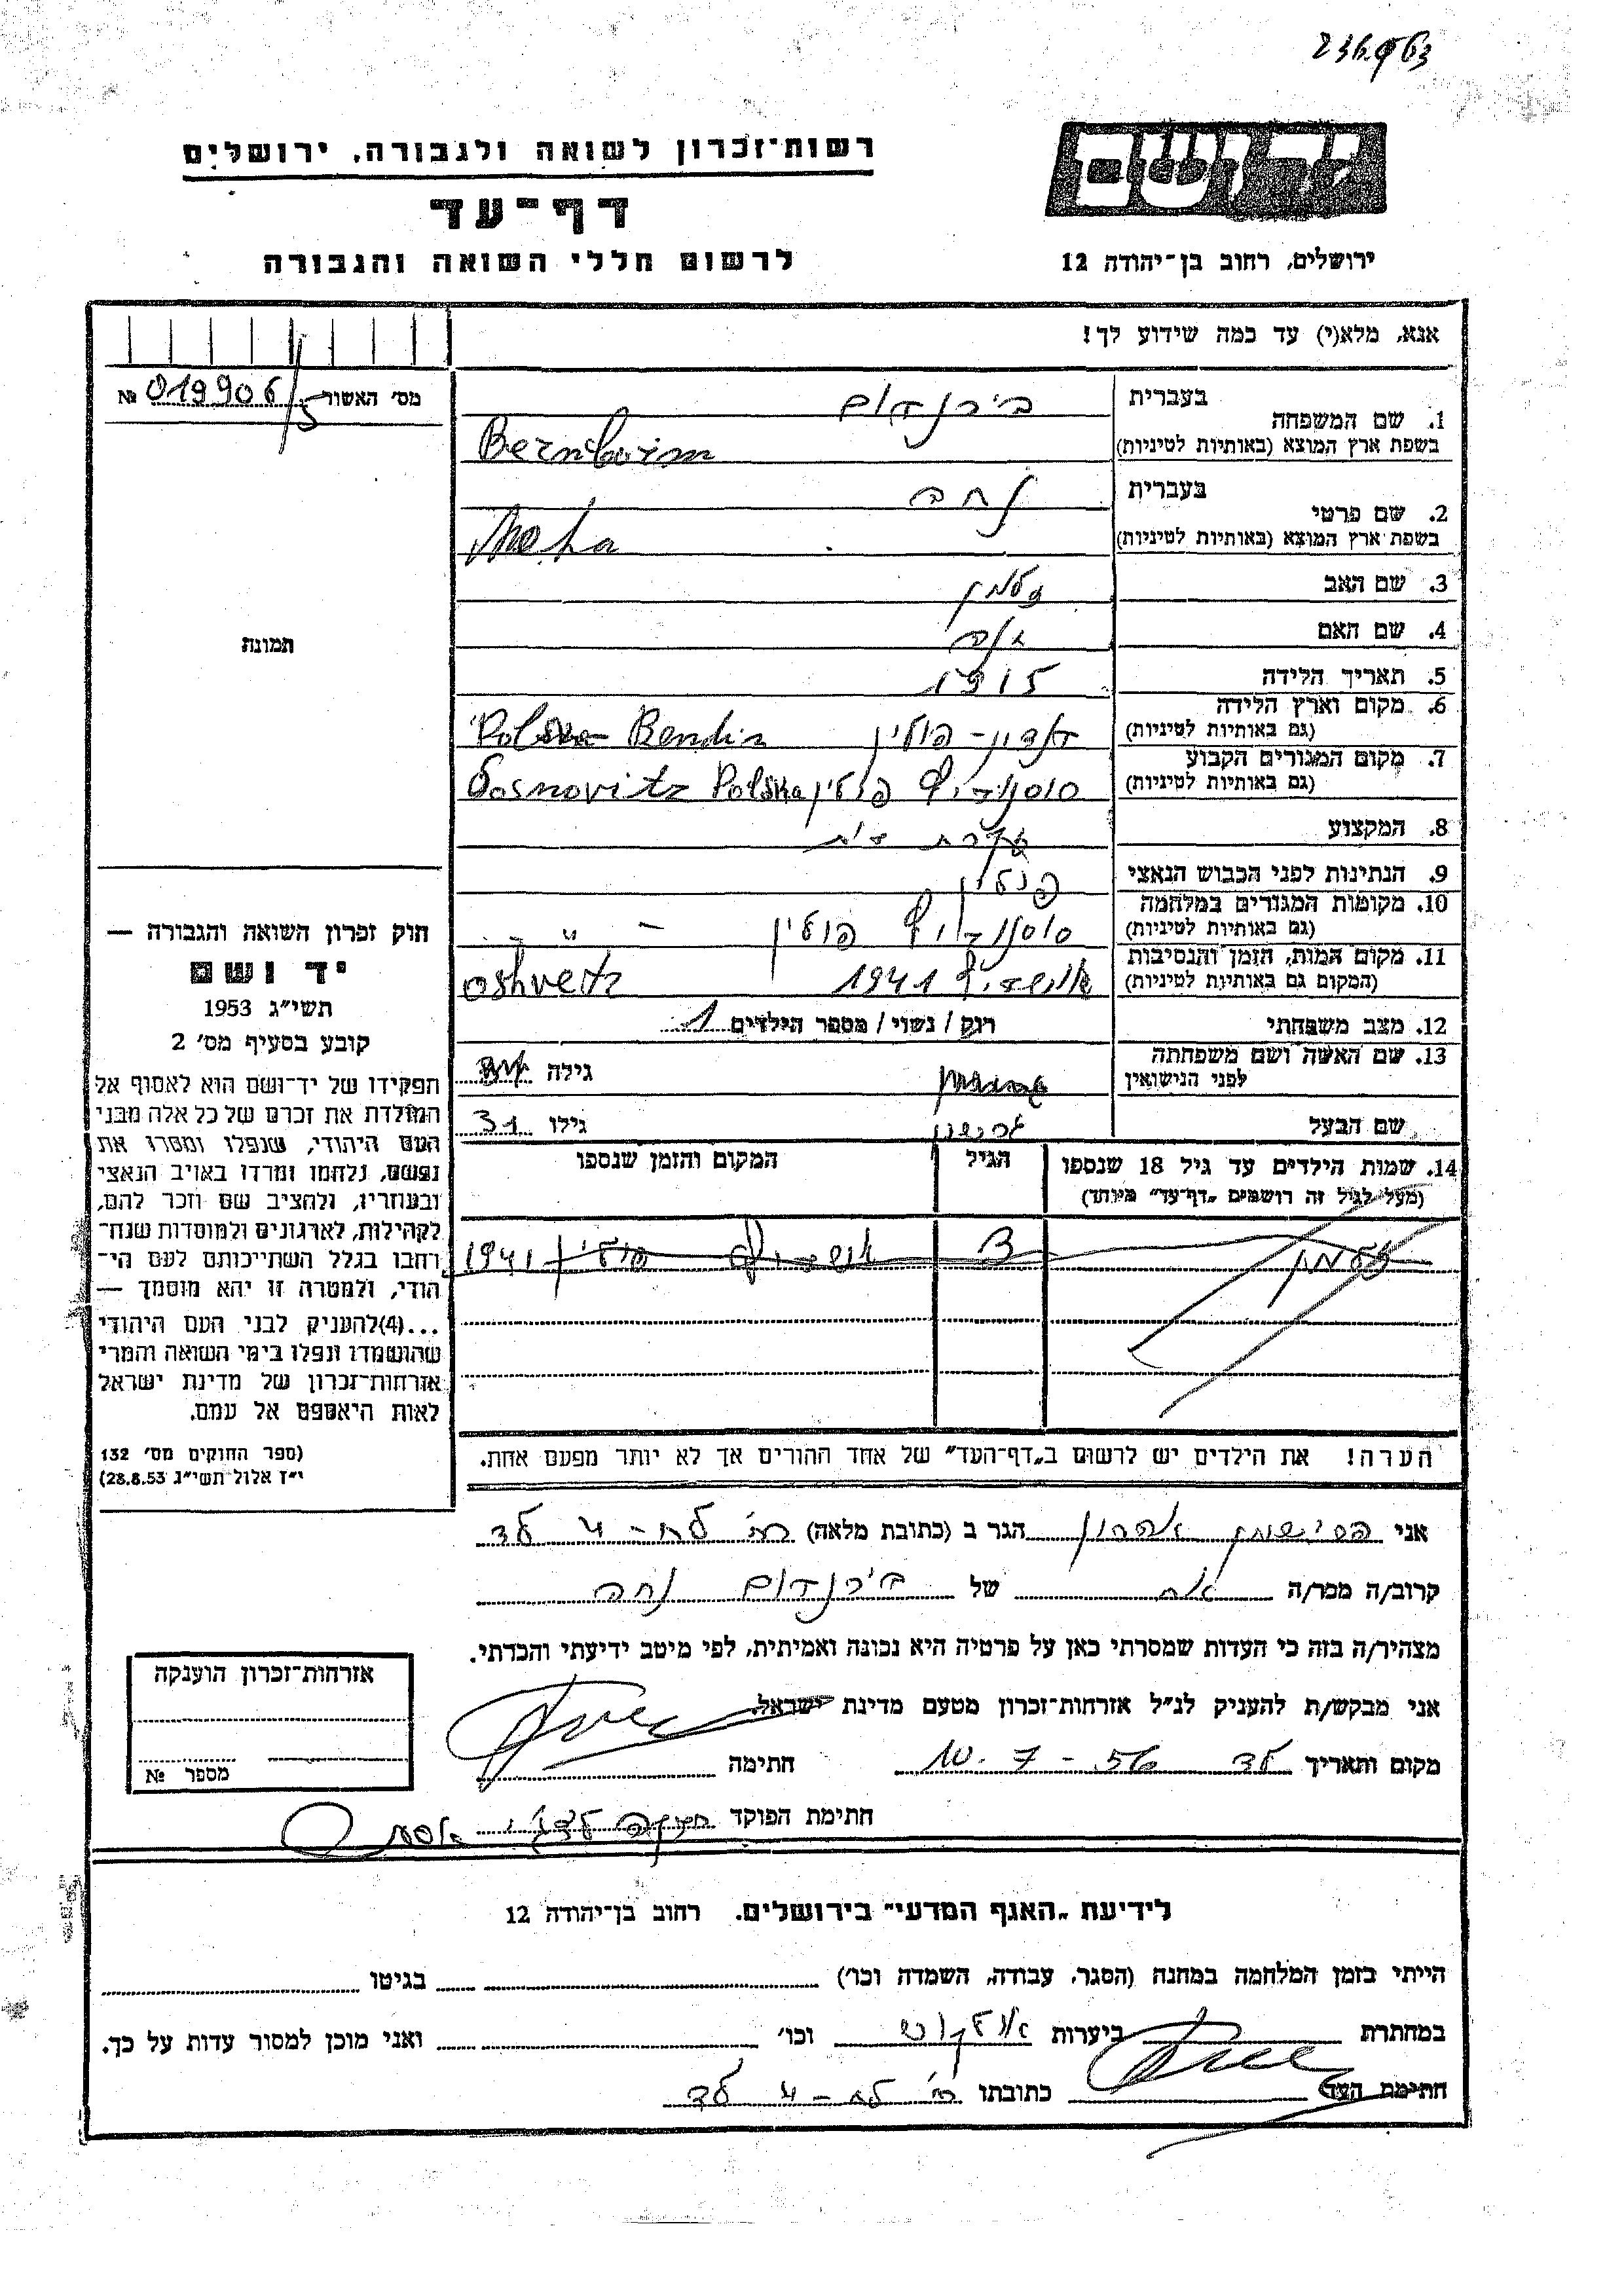 236963
רשות־זכרון לשואה ולגבורה, ירושלים
דף־עד
לרשום חללי השואה והגבורה
יד ושם
ירושלים, רחוב בן־יהודה 12
אנא, מלא(י) עד כמה שידוע לך!
מס׳ האשור № 019906/5
תמונה
1. שם המשפחה
בעברית בירנדום
בשפת ארץ המוצא (באותיות לטיניות)
2. שם פרטי
בעברית נחה
בשפת ארץ המוצא (באותיות לטיניות)
3. שם האב זלמן
4. שם האם
5. תאריך הלידה 1915
6. מקום וארץ הלידה
(גם באותיות לטיניות) פולין Bendin Polska
7. מקום המגורים הקבוע
(גם באותיות לטיניות) סוסנוביץ פולין Sosnovitz Polska
8. המקצוע עקרת בית
9. הנתינות לפני הכבוש הנאצי
10. מקומות המגורים במלחמה
(גם באותיות לטיניות) סוסנוביץ פולין - " -
11. מקום המות, הזמן והנסיבות
(המקום גם באותיות לטיניות) אושביץ 1941 oshvetz
12. מצב משפחתי רווק / נשוי / מספר הילדים 1
13. שם האשה ושם משפחתה
לפני הנישואין גילה
שם הבעל גילו 31
14. שמות הילדים עד גיל 18 שנספו
(מעל לגיל זה רושמים „דף־עד״ מיוחד)
הגיל
המקום והזמן שנספו
זלמן 3 אושביץ פולין 1941
הערה! את הילדים יש לרשום ב„דף־העד״ של אחד ההורים אך לא יותר מפעם אחת.
חוק זכרון השואה והגבורה —
יד ושם
תשי״ג 1953
קובע בסעיף מס׳ 2
תפקידו של יד־ושם הוא לאסוף אל
המולדת את זכרם של כל אלה מבני
העם היהודי, שנפלו ומסרו את
נפשם, נלחמו ומרדו באויב הנאצי
ובעוזריו, ולהציב שם וזכר להם,
לקהילות, לארגונים ולמוסדות שנח־
רחבו בגלל השתייכותם לעם הי־
הודי, ולמטרה זו יהא מוסמך —
...(4)להעניק לבני העם היהודי
שהושמדו ונפלו בימי השואה והמרי
אזרחות־זכרון של מדינת ישראל
לאות היאספם אל עמם.
(ספר החוקים מס׳ 132
י״ז אלול תשי״ג 28.8.53)
אני אהרון הגר ב (כתובת מלאה)
קרוב/ה מכר/ה אח של בירנדום נחה
מצהיר/ה בזה כי העדות שמסרתי כאן על פרטיה היא נכונה ואמיתית, לפי מיטב ידיעתי והכרתי.
אני מבקש/ת להעניק לנ״ל אזרחות־זכרון מטעם מדינת ישראל.
מקום ותאריך לד 10.7-56 חתימה
חתימת הפוקד
אזרחות־זכרון הוענקה
מספר №
לידיעת „האגף המדעי״ בירושלים. רחוב בן־יהודה 12
הייתי בזמן המלחמה במחנה (הסגר, עבודה, השמדה וכו׳) בגיטו
במחתרת ביערות וכו׳ ואני מוכן למסור עדות על כך.
חתימת העד כתובתו